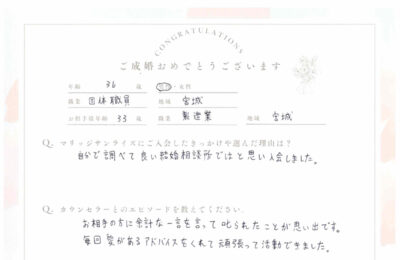 CONGRATULATIONS
ご成婚おめでとうございます
年齢 36 歳 男性・女性
職業 団体職員 地域 宮城
お相手様年齢 33 歳 職業 製造業 地域 宮城
Q. マリッジサンライズにご入会したきっかけや選んだ理由は?
自分で調べて良い結婚相談所ではと思い入会しました。
Q. カウンセラーとのエピソードを教えてください。
お相手の方に余計な一言を言って叱られたことが思い出です。
毎回愛があるアドバイスをくれて頑張って活動できました。